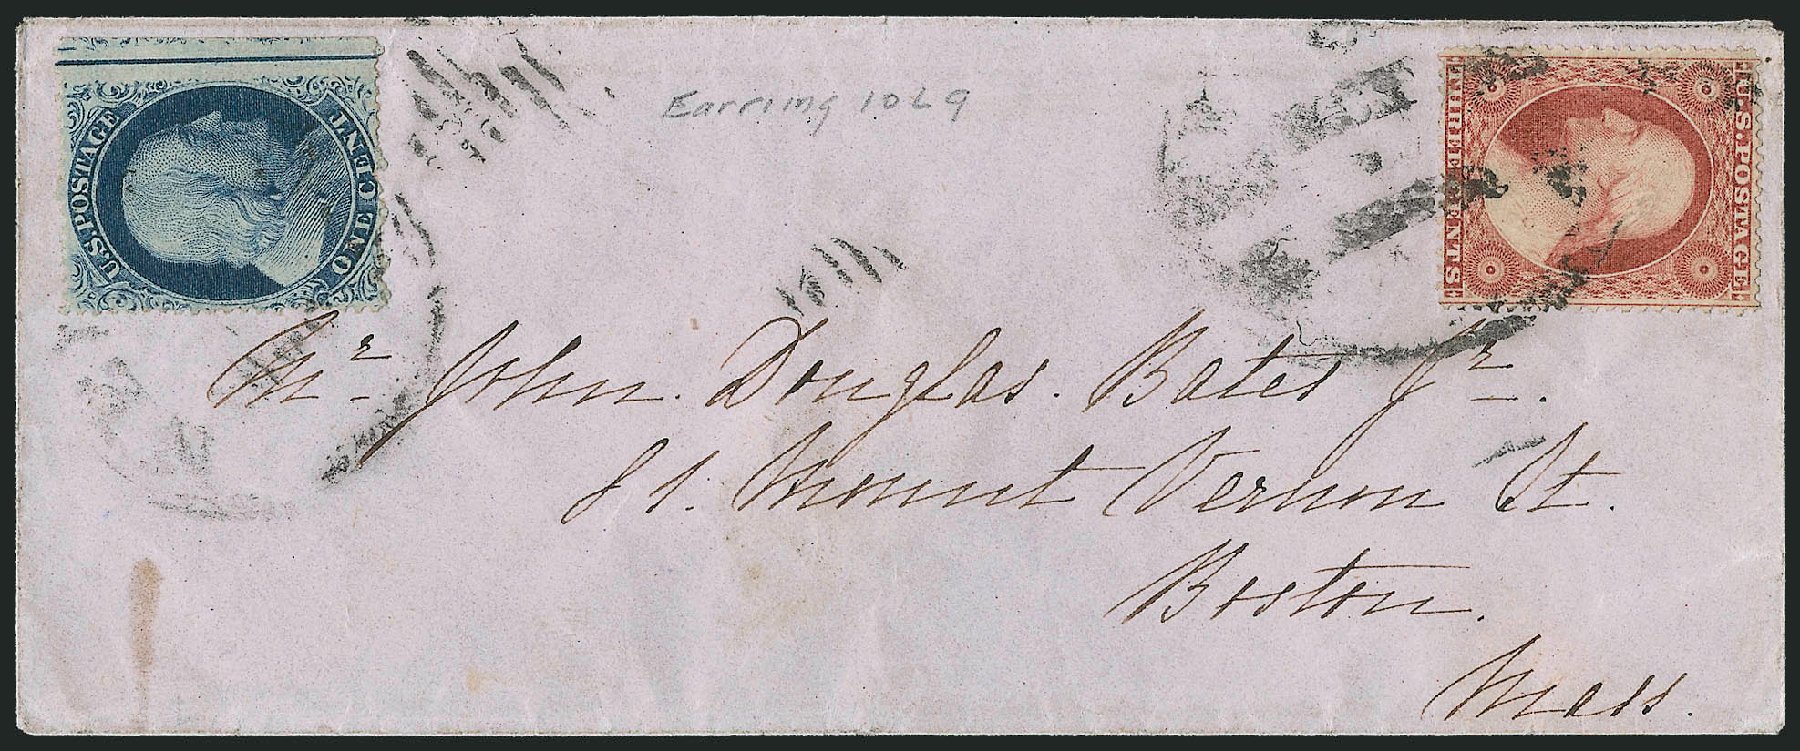 U.S. POSTAGE
ONE CENT
Earring 10L9
U.S. POSTAGE
THREE CENTS
Mr John. Douglas. Bates Jr.
81. Mount Vernon St.
Boston.
Mass.